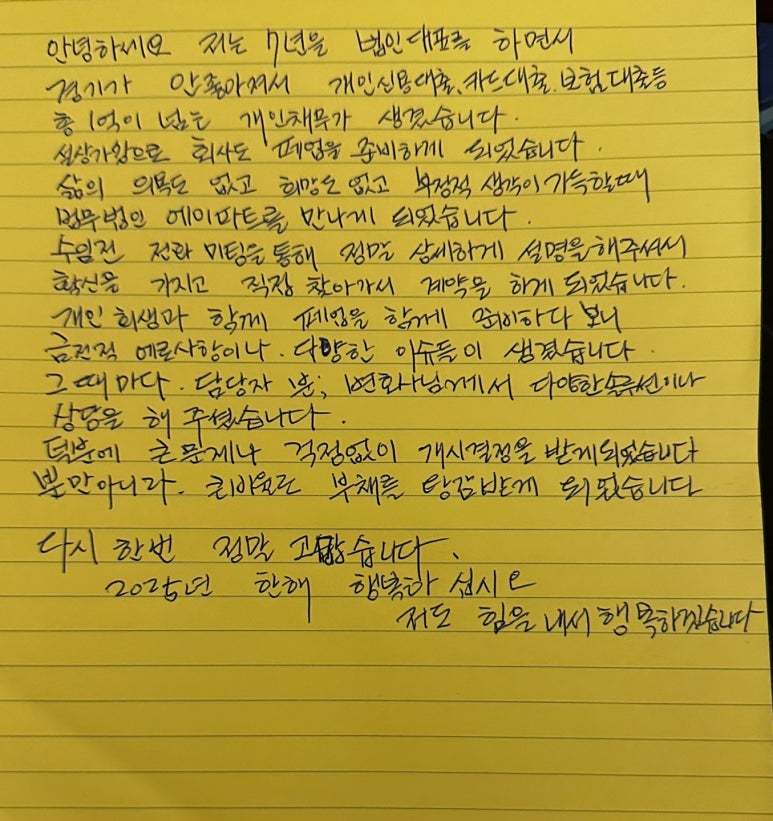 안녕하세요 저는 7년을 법인대표를 하면서
경기가 안좋아져서 개인신용대출, 카드대출, 보험대출등
총 1억이 넘는 개인채무가 생겼습니다.
설상가상으로 회사도 폐업을 준비하게 되었습니다.
삶의 의욕도 없고 희망도 없고 부정적 생각이 가득할때
법무법인 에이파트를 만나게 되었습니다.
수임전 전화 미팅을 통해 정말 상세하게 설명을해주셔서
확신을 가지고 직접 찾아가서 계약을 하게 되었습니다.
개인회생과 함께 폐업을 함께 준비하다 보니
금전적 애로사항이나. 다양한 이슈들이 생겼습니다.
그때마다. 담당자 분, 변호사님께서 다양한솔루션이나
상담을 해 주셨습니다.
덕분에 큰문제나 걱정없이 개시결정을 받게되었습니다
뿐만아니라. 큰비율로 부채를 탕감받게 되었습니다
다시 한번 정말 고맙습니다.
2025년 한해 행복하십시오
저도 힘을내서 행복하겠습니다